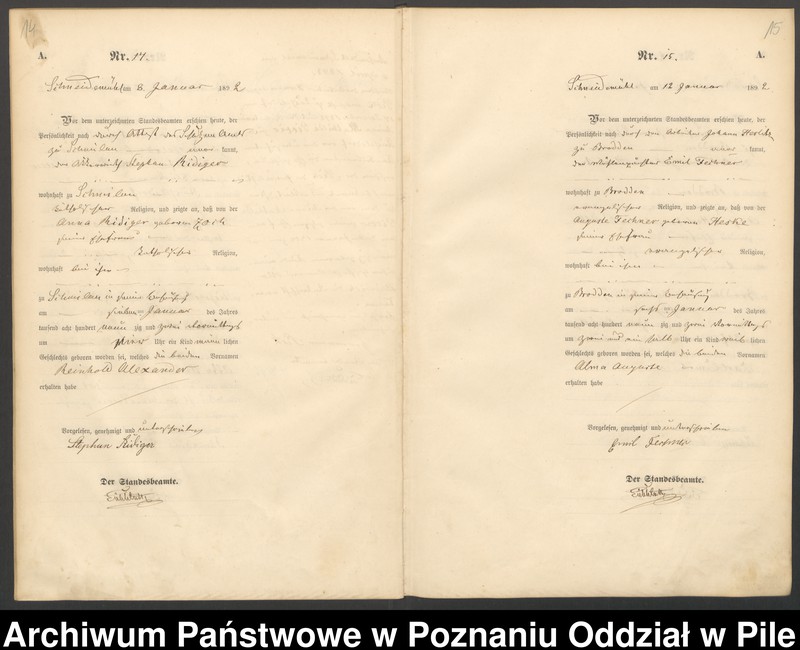 14
A.
Nr. 14.
Schneidemühl am 8. Januar 1892
Vor dem unterzeichneten Standesbeamten erschien heute, der
Persönlichkeit nach durch Attest des Schulzen Amts
zu kannt,
der Stephan Ridiger
wohnhaft zu
katholischer Religion, und zeigte an, daß von der
Anna Ridiger geborenen
seiner Ehefrau
katholischer Religion,
wohnhaft bei ihm
zu in seiner Behausung
am sieben Januar des Jahres
tausend acht hundert neun zig und zwei Vormittags
um vier Uhr ein Kind männlichen
Geschlechts geboren worden sei, welches die beiden Vornamen
Reinhold Alexander
erhalten habe
Vorgelesen, genehmigt und unterschrieben
Stephan Ridiger
Der Standesbeamte.
15
Nr. 15.
A.
Schneidemühl am 12 Januar 1892
Vor dem unterzeichneten Standesbeamten erschien heute, der
Persönlichkeit nach durch den Arbeiter Johann
zu Brodden kannt,
der Mühlenpächter Emil Fechner
wohnhaft zu Brodden
evangelischer Religion, und zeigte an, daß von der
Auguste Fechner geborenen Heske
seiner Ehefrau
evangelischer Religion,
wohnhaft bei ihm
zu Brodden in seiner Behausung
am sechs Januar des Jahres
tausend acht hundert neun zig und zwei Vormittags
um zwei und ein halb Uhr ein Kind weiblichen
Geschlechts geboren worden sei, welches die beiden Vornamen
Alma Auguste
erhalten habe
Vorgelesen, genehmigt und unterschrieben
Emil Fechner
Der Standesbeamte.
Archiwum Państwowe w Poznaniu Oddział w Pile